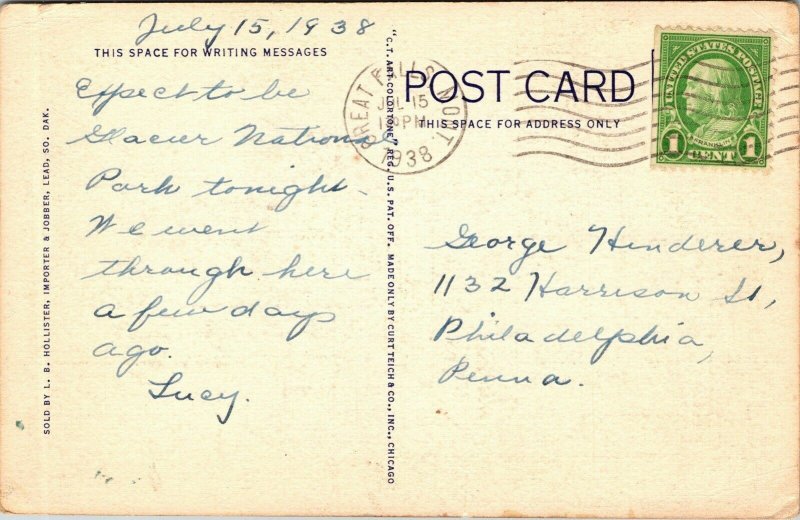 July 15, 1938
THIS SPACE FOR WRITING MESSAGES
Expect to be
Glacier National
Park tonight -
We went
through here
a few days
ago.
Lucy.
SOLD BY L. B. HOLLISTER, IMPORTER & JOBBER, LEAD, SO. DAK.
"C.T. ART-COLORTONE" REG. U.S. PAT. OFF. MADE ONLY BY CURT TEICH & CO., INC., CHICAGO
GREAT FALLS MONT.
JUL 15
PM
1938
POST CARD
THIS SPACE FOR ADDRESS ONLY
UNITED STATES POSTAGE
FRANKLIN
1 CENT 1
George Hinderer,
1132 Harrison St,
Philadelphia,
Penna.